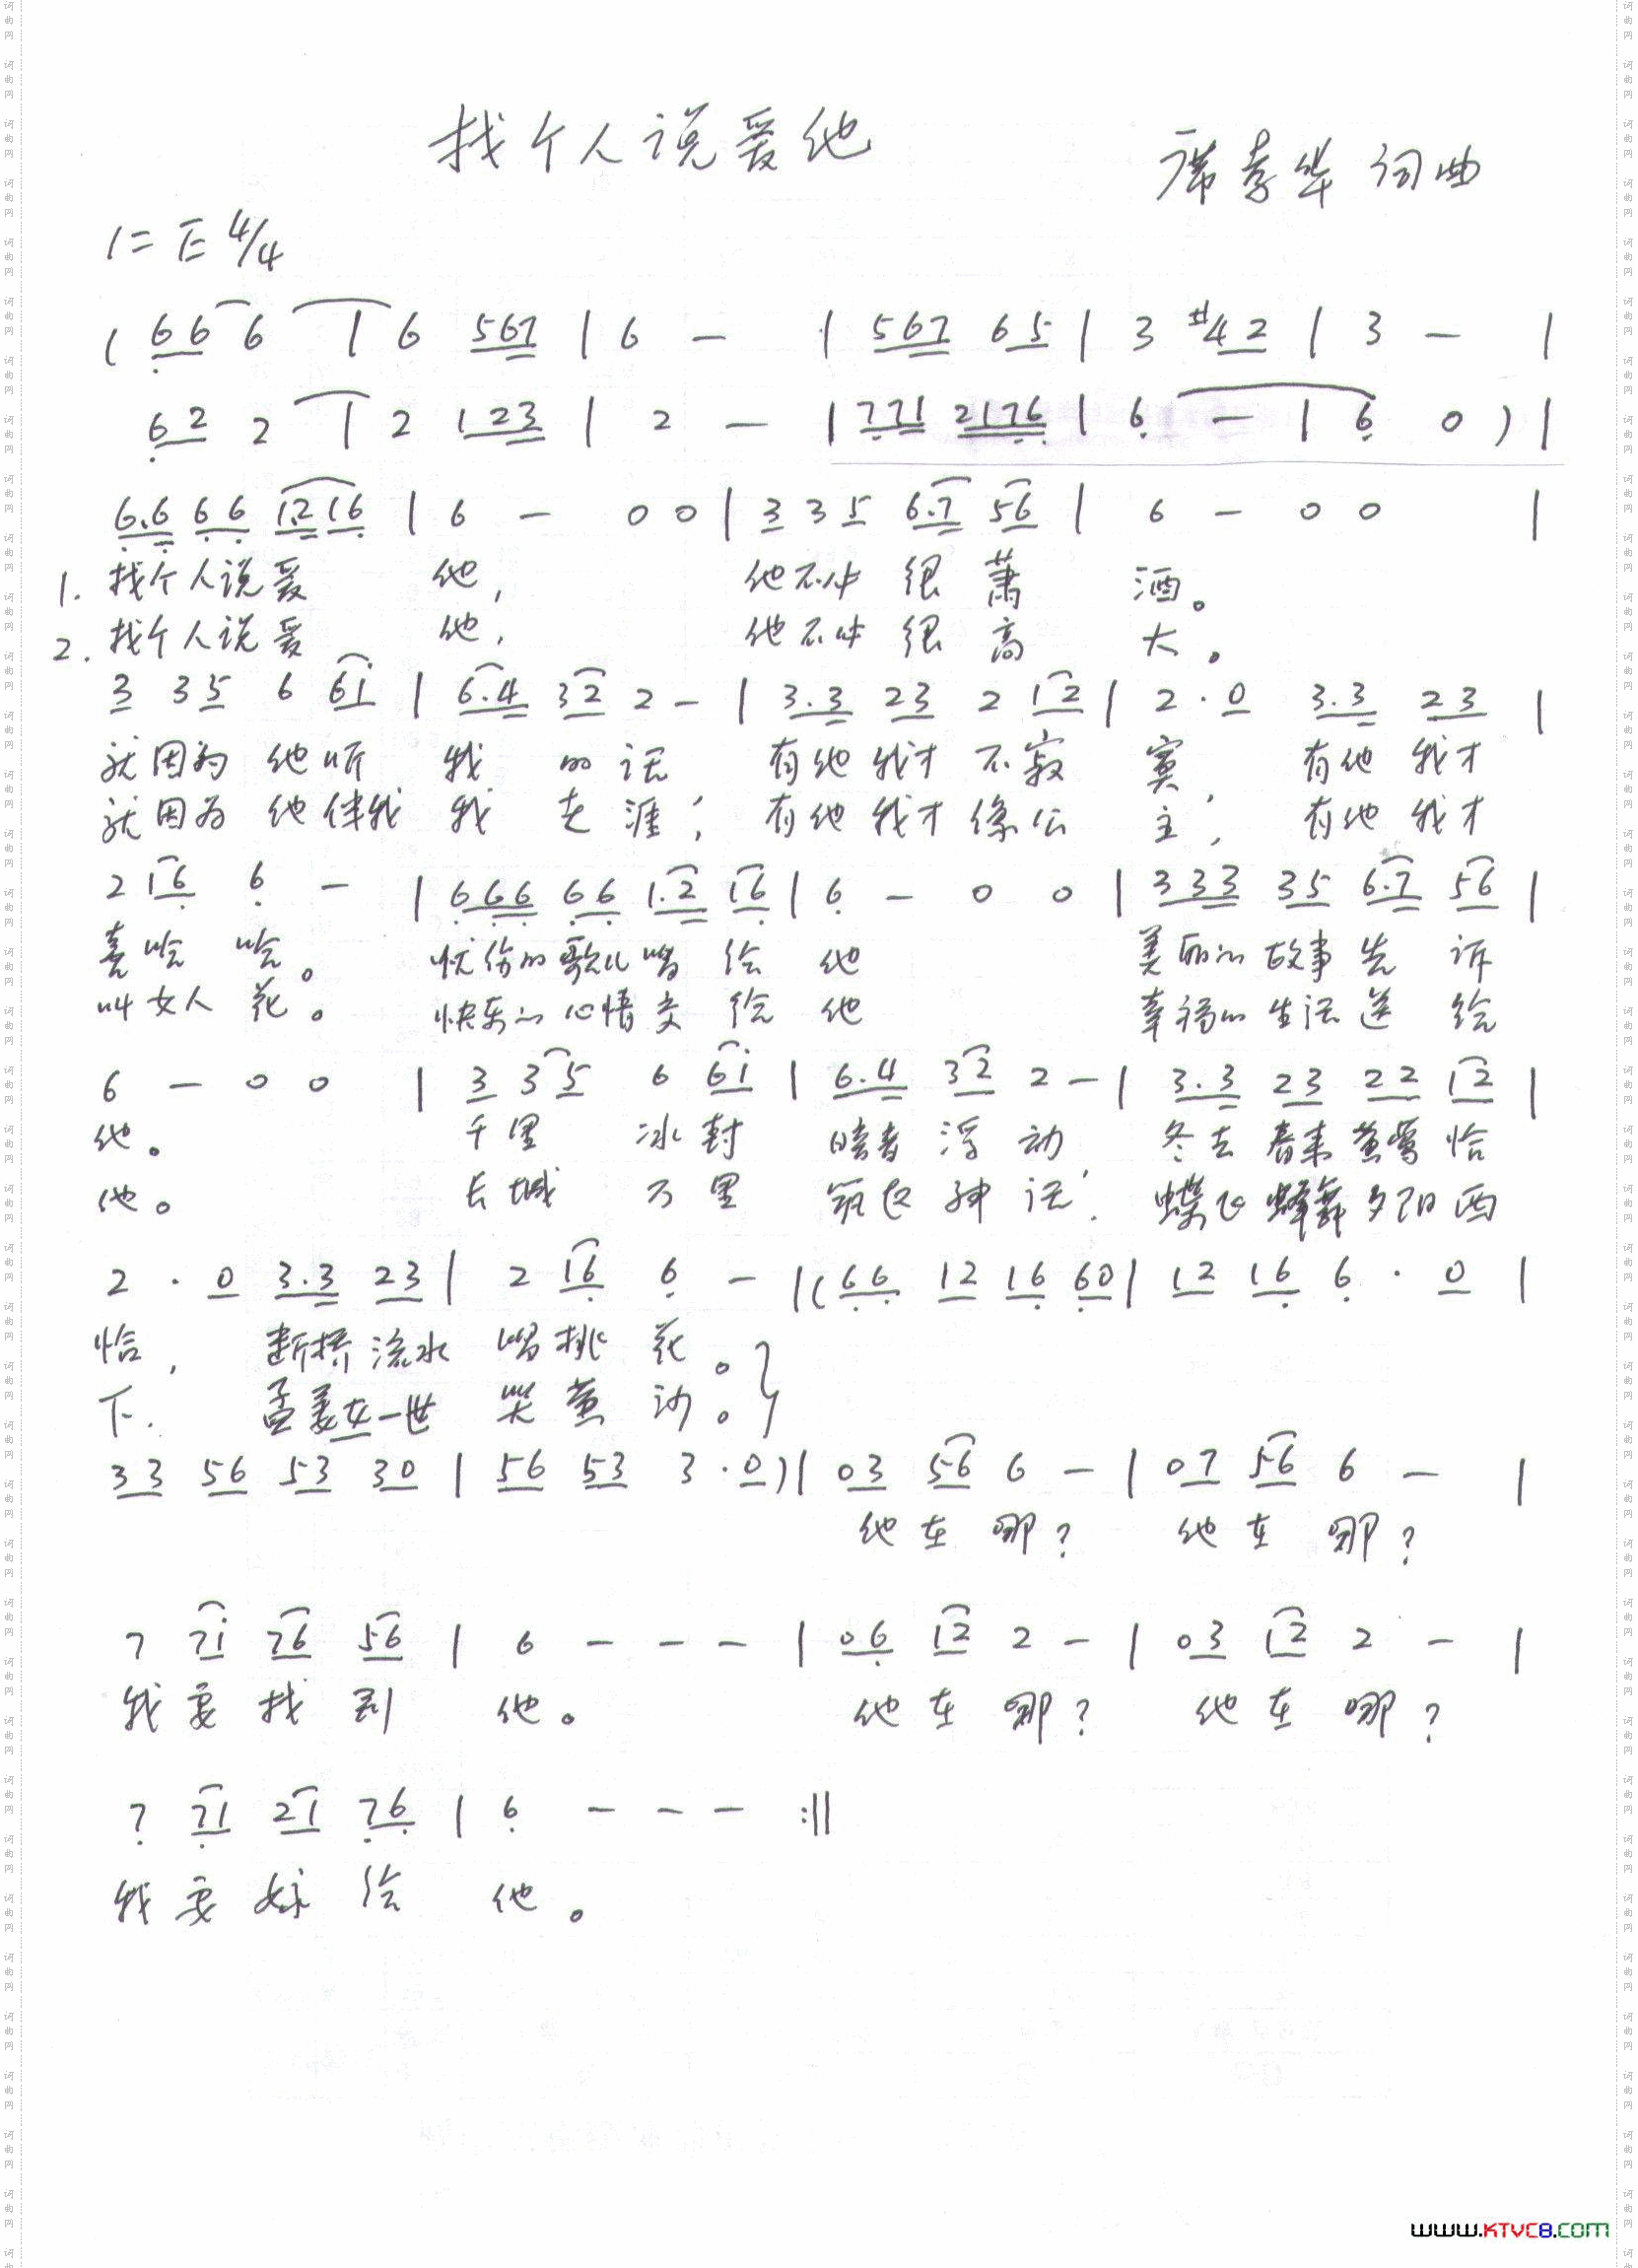 找个人说爱他
席孝华 词曲
1=E 4/4
( 6 6 6 | 6 5 6 7 | 6 - | 5 6 7 6 5 | 3 #4 2 | 3 - |
6 2 2 | 2 1 2 3 | 2 - | 7 7 1 2 1 7 6 | 6 - | 6 0 ) |
6.6 6 6 1.2 1 6 | 6 - 0 0 | 3 3 5 6.7 5 6 | 6 - 0 0 |
1. 找个人说爱 他, 他不他 很 萧 洒。
2. 找个人说爱 他, 他不他 很 高 大。
3 3 5 6 6 i | 6.4 3 2 2 - | 3.3 2 3 2 1 2 | 2 . 0 3.3 2 3 |
就因为 他听 我 的话 有他我才 不寂 寞, 有他 我才
就因为 他伴我 我 走 涯; 有他我才 像公 主, 有他 我才
2 1 6 6 - | 6 6 6 6 6 1.2 1 6 | 6 - 0 0 | 3 3 3 3 5 6.7 5 6 |
喜哈 哈。 忧伤的歌儿唱 给 他 美丽的 故事 告 诉
叫女人 花。 快乐的心情交 给 他 幸福的 生活 送 给
6 - 0 0 | 3 3 5 6 6 i | 6.4 3 2 2 - | 3.3 2 3 2 2 1 2 |
他。 千里 冰封 暗香 浮 动 冬去 春来 黄莺 恰
他。 长城 万里 筑起 神 话; 蝶飞 蜂舞 夕阳 西
2 . 0 3.3 2 3 | 2 1 6 6 - | ( 6 6 1 2 1 6 6 0 | 1 2 1 6 6 . 0 |
恰, 断桥 流水 唱桃 花。
下. 孟姜女一世 笑黄 沙。
3 3 5 6 5 3 3 0 | 5 6 5 3 3 . 0 ) | 0 3 5 6 6 - | 0 7 5 6 6 - |
他 在 哪? 他 在 哪?
7 7 i 7 6 5 6 | 6 - - - | 0 6 1 2 2 - | 0 3 1 2 2 - |
我 要 找 到 他。 他 在 哪? 他 在 哪?
7 7 1 2 1 7 6 | 6 - - - :||
我 要 嫁 给 他。
www.KTVC8.com